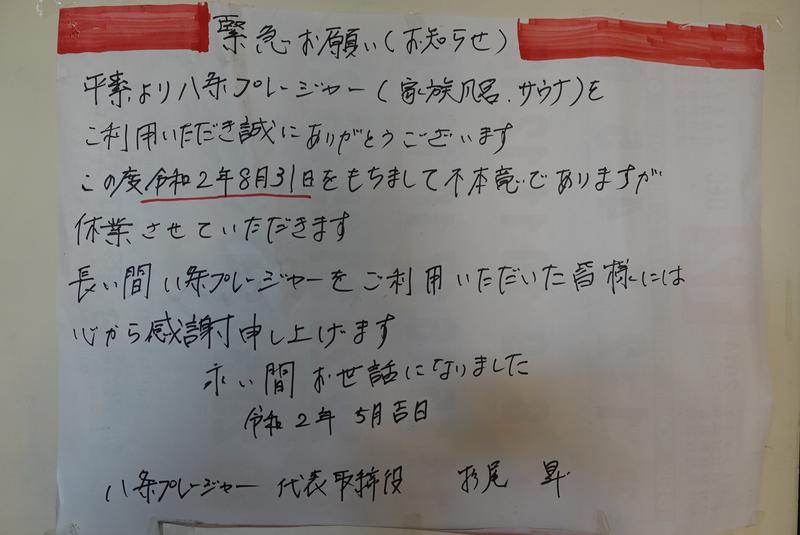 緊急お願い(お知らせ)
平素より八条プレージャー(家族風呂、サウナ)を
ご利用いただき誠にありがとうございます
この度令和2年8月31日をもちまして不本意でありますが
休業させていただきます
長い間八条プレージャーをご利用いただいた皆様には
心から感謝申し上げます
永い間お世話になりました
令和2年5月吉日
八条プレージャー 代表取締役 杉尾 昇